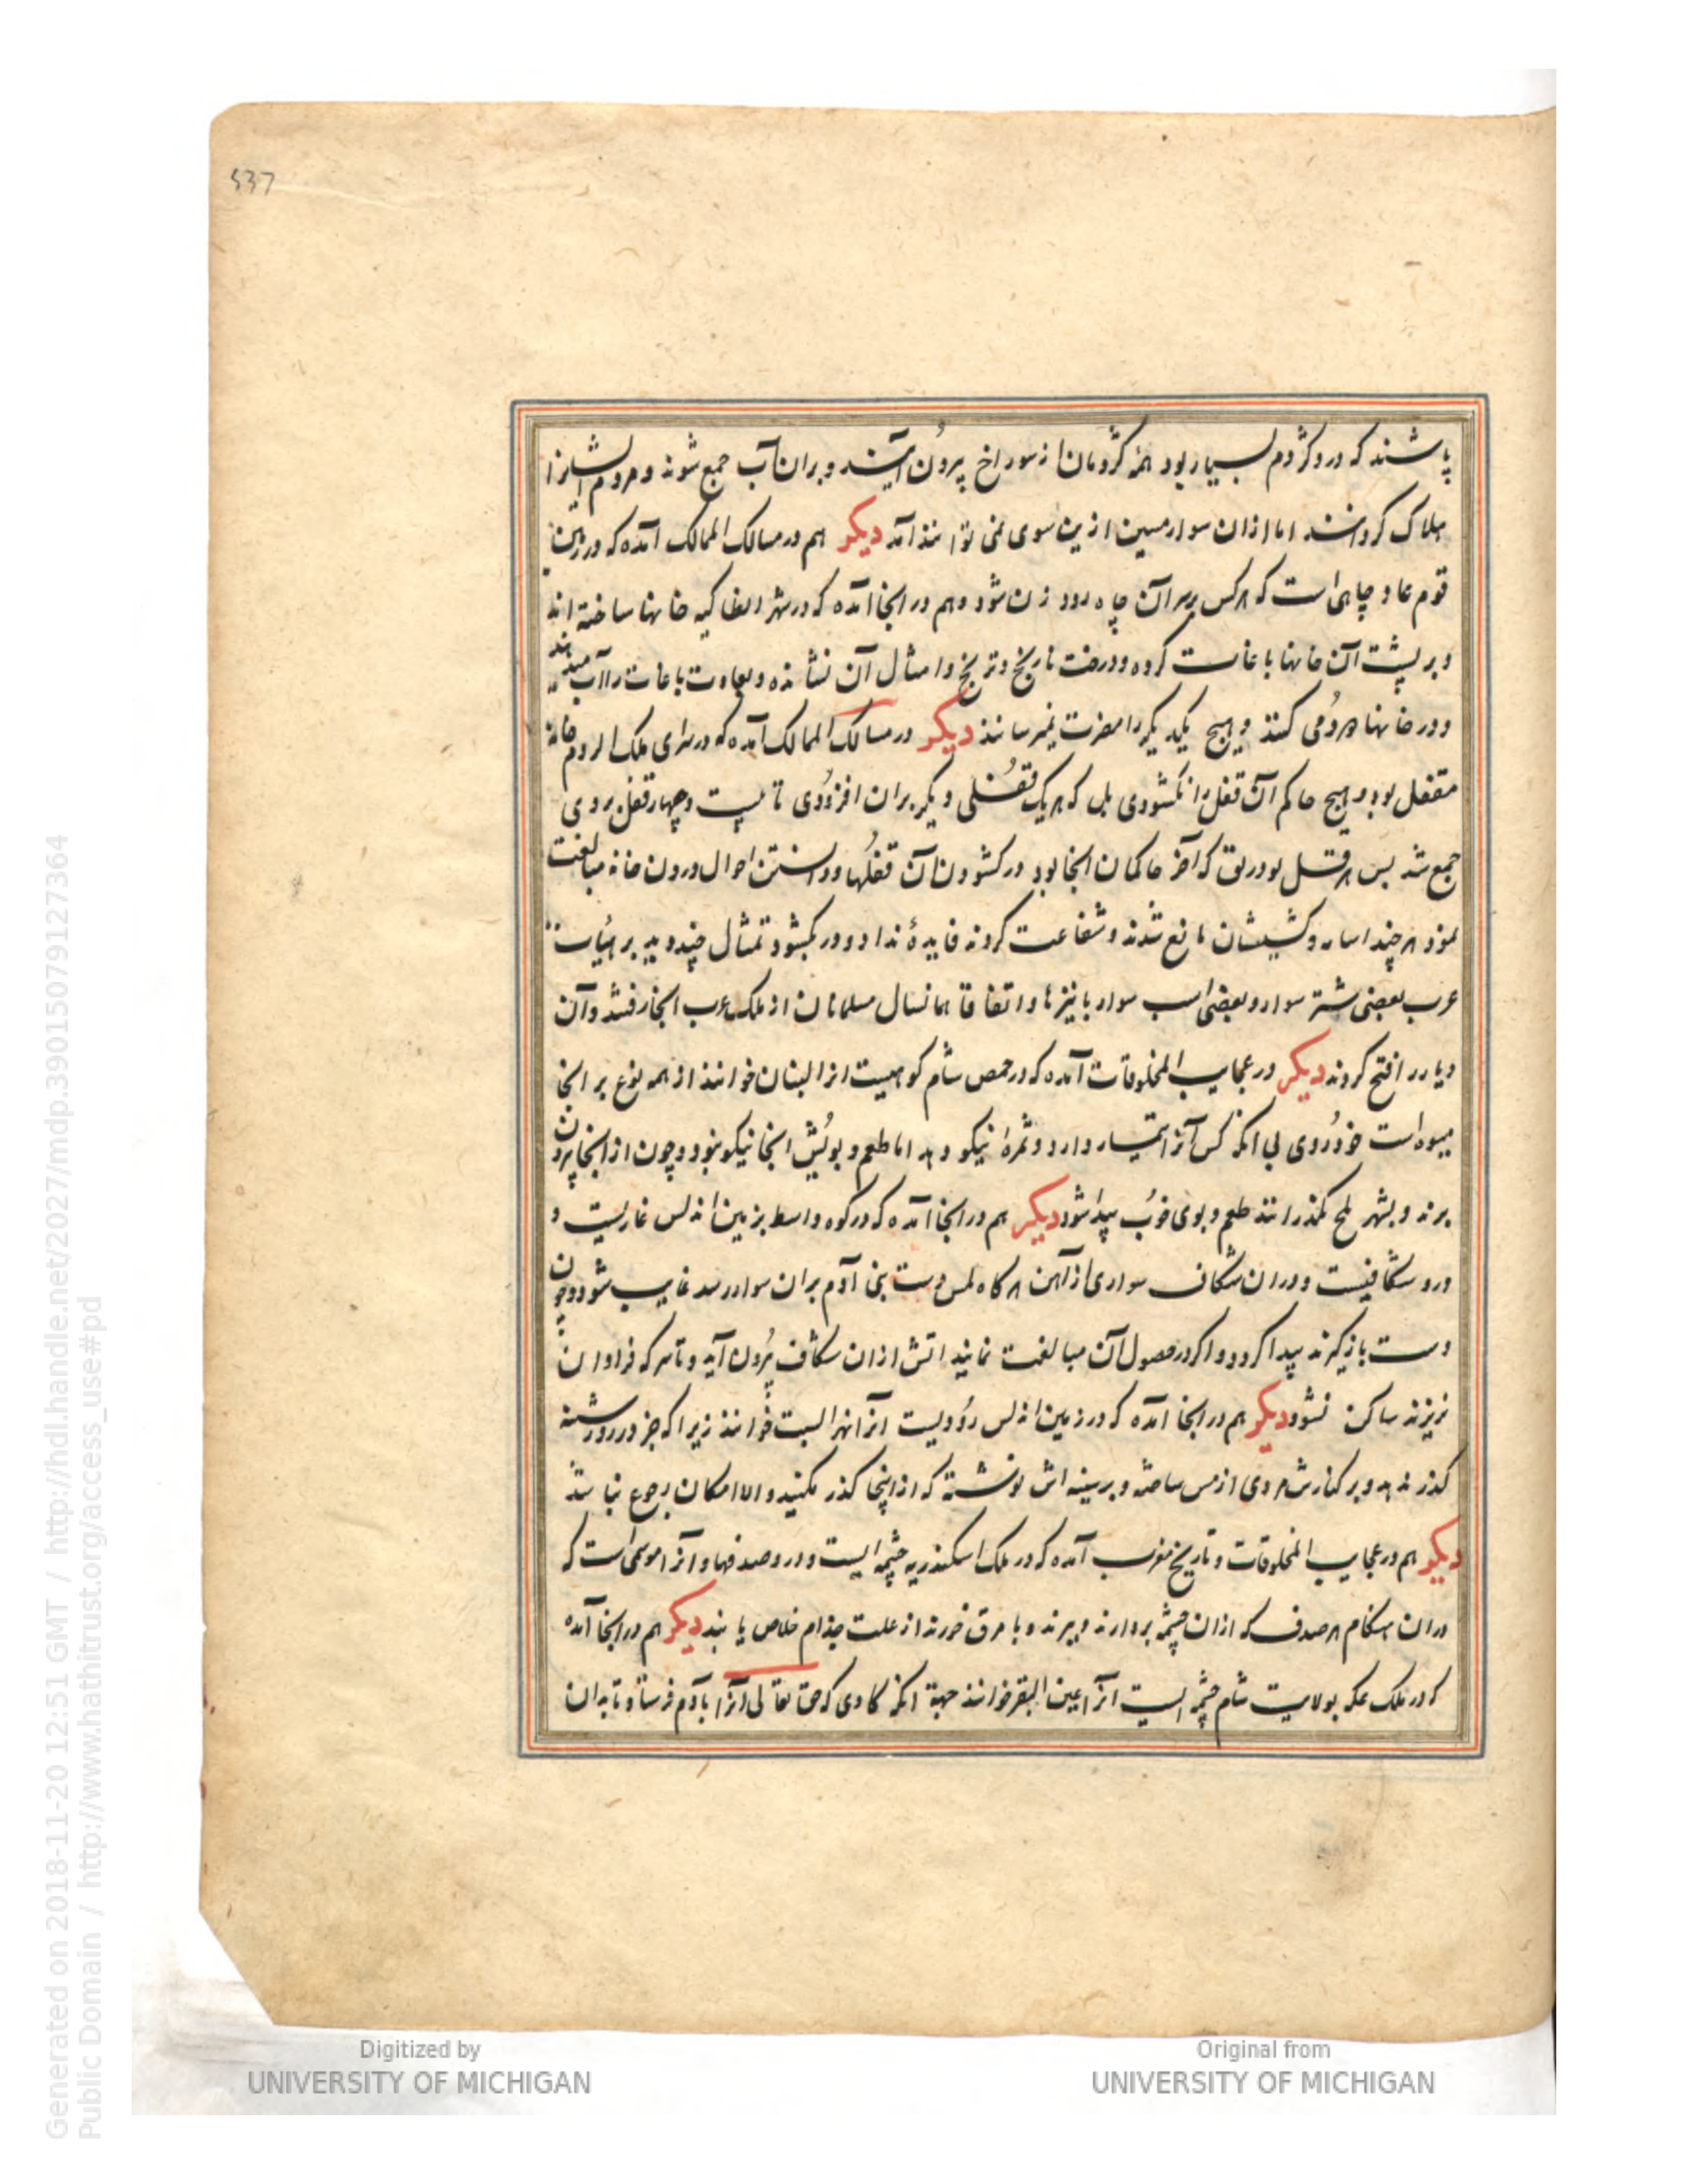 537
پاشند که درو کژدم بسیار بود همه کژدمان از سوراخ بیرون آیند و بران آب جمع شوند و مردم ایشانرا
هلاک کردانند اما ازان سوار مسین ازین سوی نمی توانند آمد دیکر هم در مسالک الممالک آمده که در زمین
قوم عاد چاهی است که هرکس بر سر آن چاه رود زن شود و هم در انجا آمده که در شهر انطاکیه خانها ساخته اند
و بر پشت آن خانها باغات کرده و درخت نارنج و ترنج و امثال آن نشانده و بعادت باغات را آب میدهند
و در خانها مردمی کنند و هیچ یکدیکر را مضرت نمیرسانند دیکر در مسالک الممالک آمده که در سرای ملک الروم خانۀ
مقفل بود و هیچ حاکم آن قفل را نکشودی بل که هر یک قفلی دیکر بران افزودی تا بیست و چهار قفل بروی
جمع شد پس هرقل بودریق که آخر حاکمان انجا بود در کشودن آن قفلها و دانستن احوال درون خانه مبالغت
نمود هر چند اساقفه و کشیشان مانع شدند و شفاعت کردند فایدۀ نداد و در بکشود تمثال چند دید بر هیأت
عرب بعضی شتر سوار و بعضی اسب سوار با نیزها و اتفاقا همانسال مسلمانان از ملک عرب انجا رفتند و آن
دیار را فتح کردند دیکر در عجایب المخلوقات آمده که در حمص شام کوهیست انرا لبنان خوانند از همه نوع بر انجا
میوه است خودروی بی انکه کس آنرا تیمار دارد و ثمرۀ نیکو دهد اما طعم و بویش انجا نیکو نبود و چون از انجا بیرون
برند و بشهر بلخ بکذرانند طعم و بوی خوب پیدا شود دیکر هم در انجا آمده که در کوه واسط بزمین اندلس غاریست و
درو شکافیست و دران شکاف سواری از آهن هرکاه لمس دست بنی آدم بران سوار رسد غایب شود و چون
دست بازکیرند پیدا کردد و اکر در حصول آن مبالغت نمایند اتش ازان شکاف بیرون آید و تا سرکه فراوان
نریزند ساکن نشود دیکر هم در انجا آمده که در زمین اندلس رودیست انرا نهر السبت خوانند زیرا که جز در روز شنبه
کذر ندهد و بر کنارش مردی از مس ساخته و بر سینه اش نوشته که از اینجا کذر مکنید و الا امکان رجوع نباشد
دیکر هم در عجایب المخلوقات و تاریخ مغرب آمده که در ملک اسکندریه چشمه ایست و درو صدفها و انرا موسمی است که
دران هنکام هر صدف که ازان چشمه بردارند و بپزند و با مرق خورند از علت جذام خلاص یابند دیکر هم در انجا آمده
که در ملک عکه بولایت شام چشمه ایست انرا عین البقر خوانند جهة انکه کاوی که حق تعالی انرا بآدم فرستاد تا بدان
Digitized by
UNIVERSITY OF MICHIGAN
Original from
UNIVERSITY OF MICHIGAN
Generated on 2018-11-20 12:51 GMT / http://hdl.handle.net/2027/mdp.39015079127364
Public Domain / http://www.hathitrust.org/access_use#pd